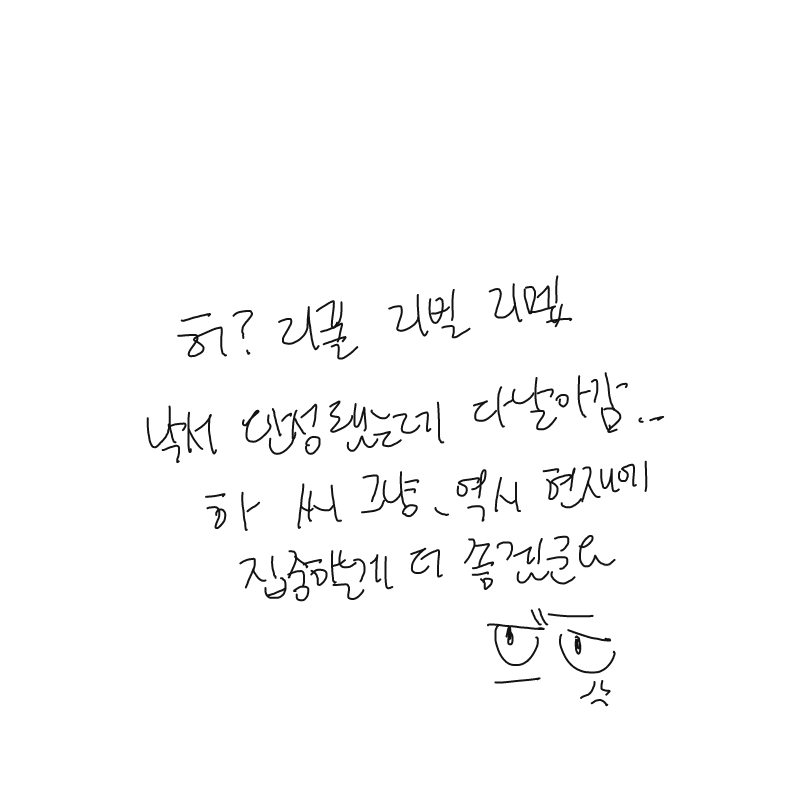 허? 리플 리벌 리멤
낙서 완성했는데 다날아감..
하 씨 그냥、역시 현재에
집중하는게 더 좋겠군요